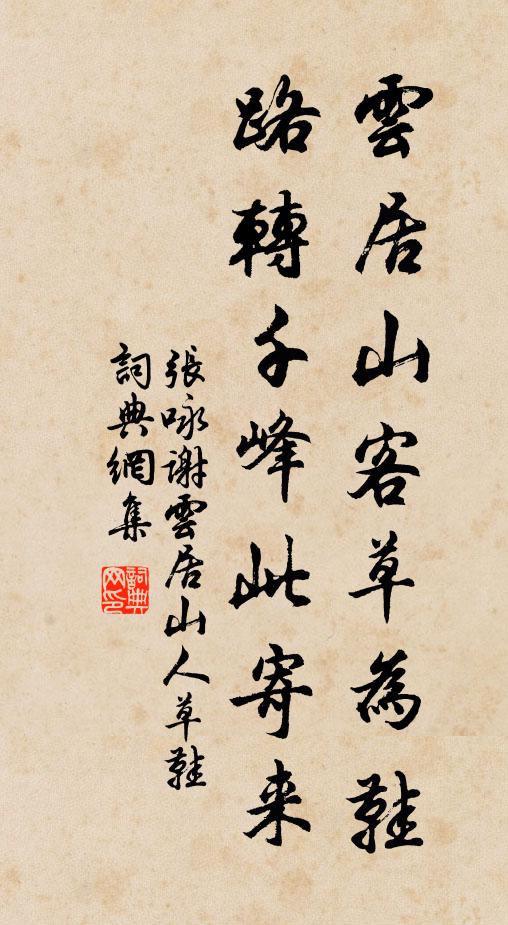 雲居山客草為鞋
路轉千峰此寄来
張咏謝雲居山人草鞋
詞典網集
詞典網印